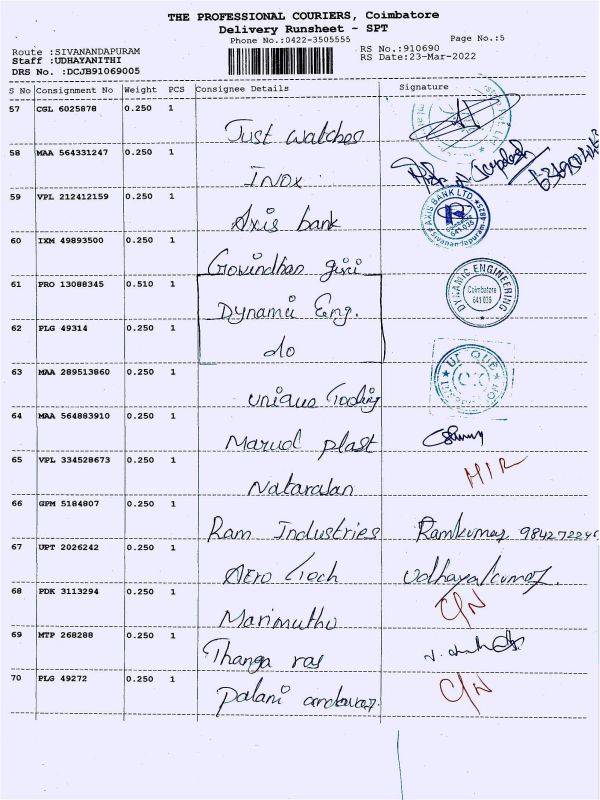 THE PROFESSIONAL COURIERS, Coimbatore
Delivery Runsheet - SPT
Phone No.:0422-3505555 Page No.:5
Route :SIVANANDAPURAM RS No.:910690
Staff :UDHAYANITHI RS Date:23-Mar-2022
DRS No. :DCJB91069005
S No Consignment No Weight PCS Consignee Details Signature
57 CGL 6025878 0.250 1 Just watches
58 MAA 564331247 0.250 1 INOX
59 VPL 212412159 0.250 1 Axis bank AXIS BANK LTD. Coimbatore 641 035
60 IXM 49893500 0.250 1 Govindhan giri
61 PRO 13088345 0.510 1 Dynamic Eng. DYNAMIC ENGINEERING Coimbatore 641 035
62 PLG 49314 0.250 1 do
63 MAA 289513860 0.250 1 unique Tooling
64 MAA 564883910 0.250 1 Marud plast
65 VPL 334528673 0.250 1 Natarajan
66 GPM 5184807 0.250 1 Ram Industries Ramkumar
67 UPT 2026242 0.250 1 Aero Tech Udhayakumar.
68 PDK 3113294 0.250 1 Marimuthu C/N
69 MTP 268288 0.250 1 Thanga raj
70 PLG 49272 0.250 1 Palani andavar. C/N